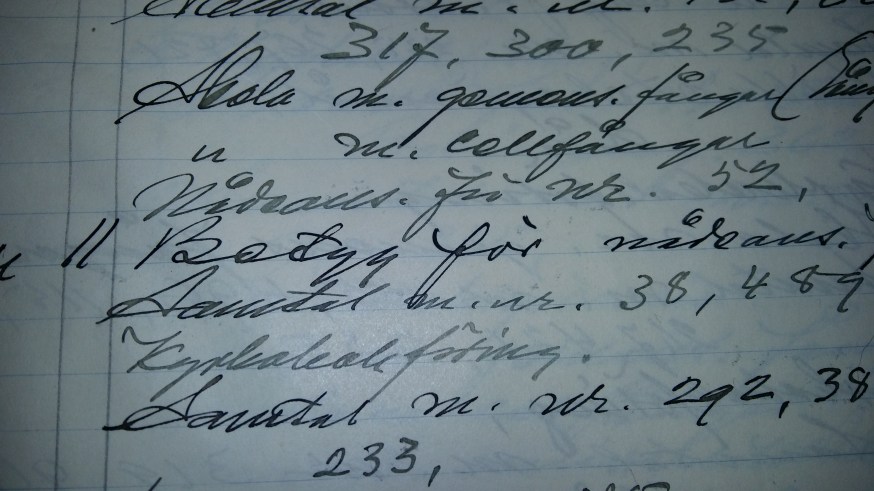 Samtal m. nr.
317, 300, 235
Skola m. gemens. fångar (
" m. cellfångar
Nådeans. för nr. 52,
" 11 Betyg för nådeans.
Samtal m. nr. 38, 489
Kyrkobokföring.
Samtal m. nr. 292, 38
233,